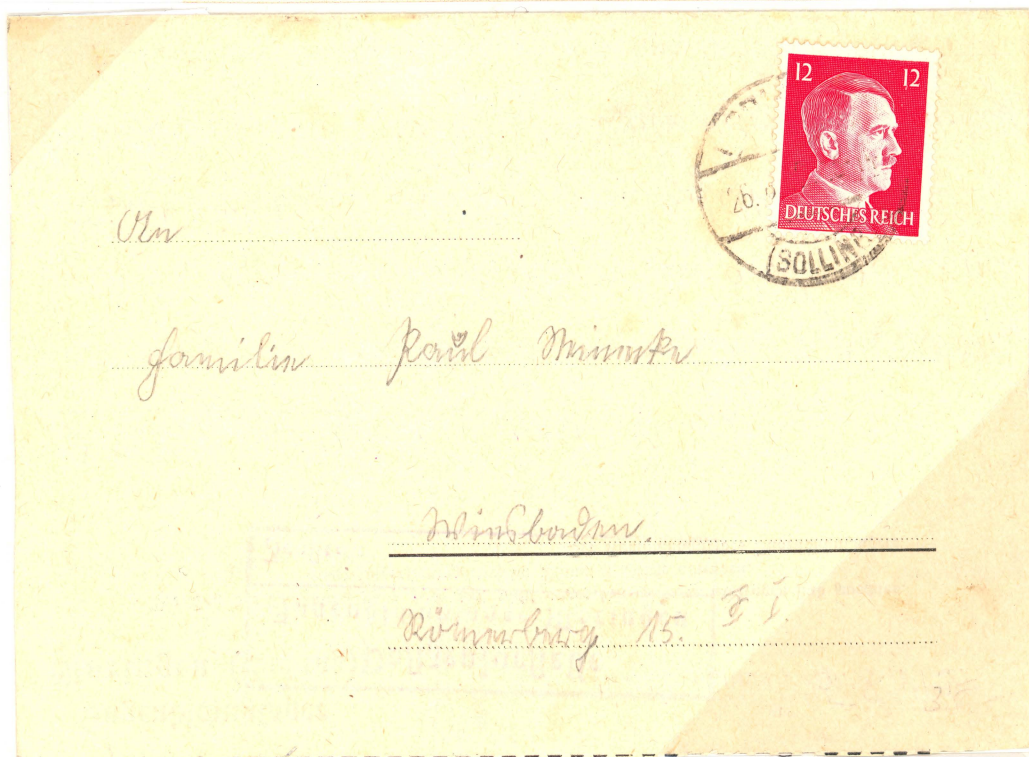 12 12
DEUTSCHES REICH
26.
(SOLLIN
An
Familie Paul Meinecke
Wiesbaden.
Römerberg 15.